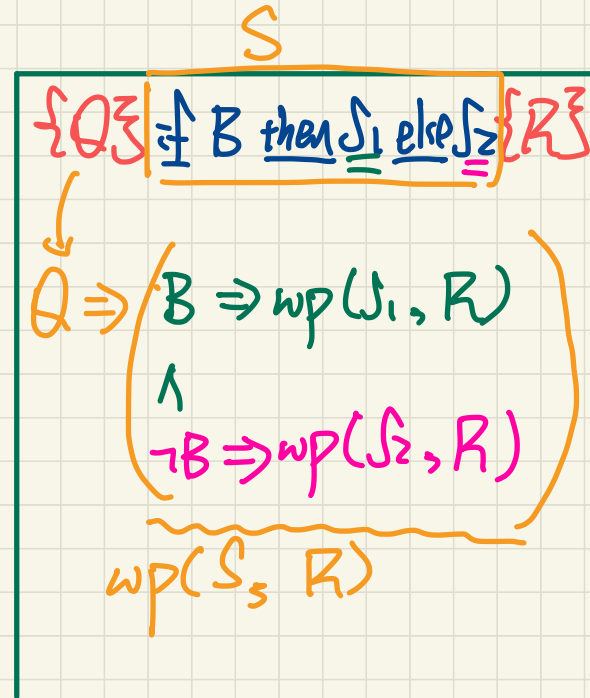 S
{Q} if B then S1 else S2 {R}
Q ⇒ ( B ⇒ wp(S1, R)
∧
¬B ⇒ wp(S2, R) )
wp(S, R)